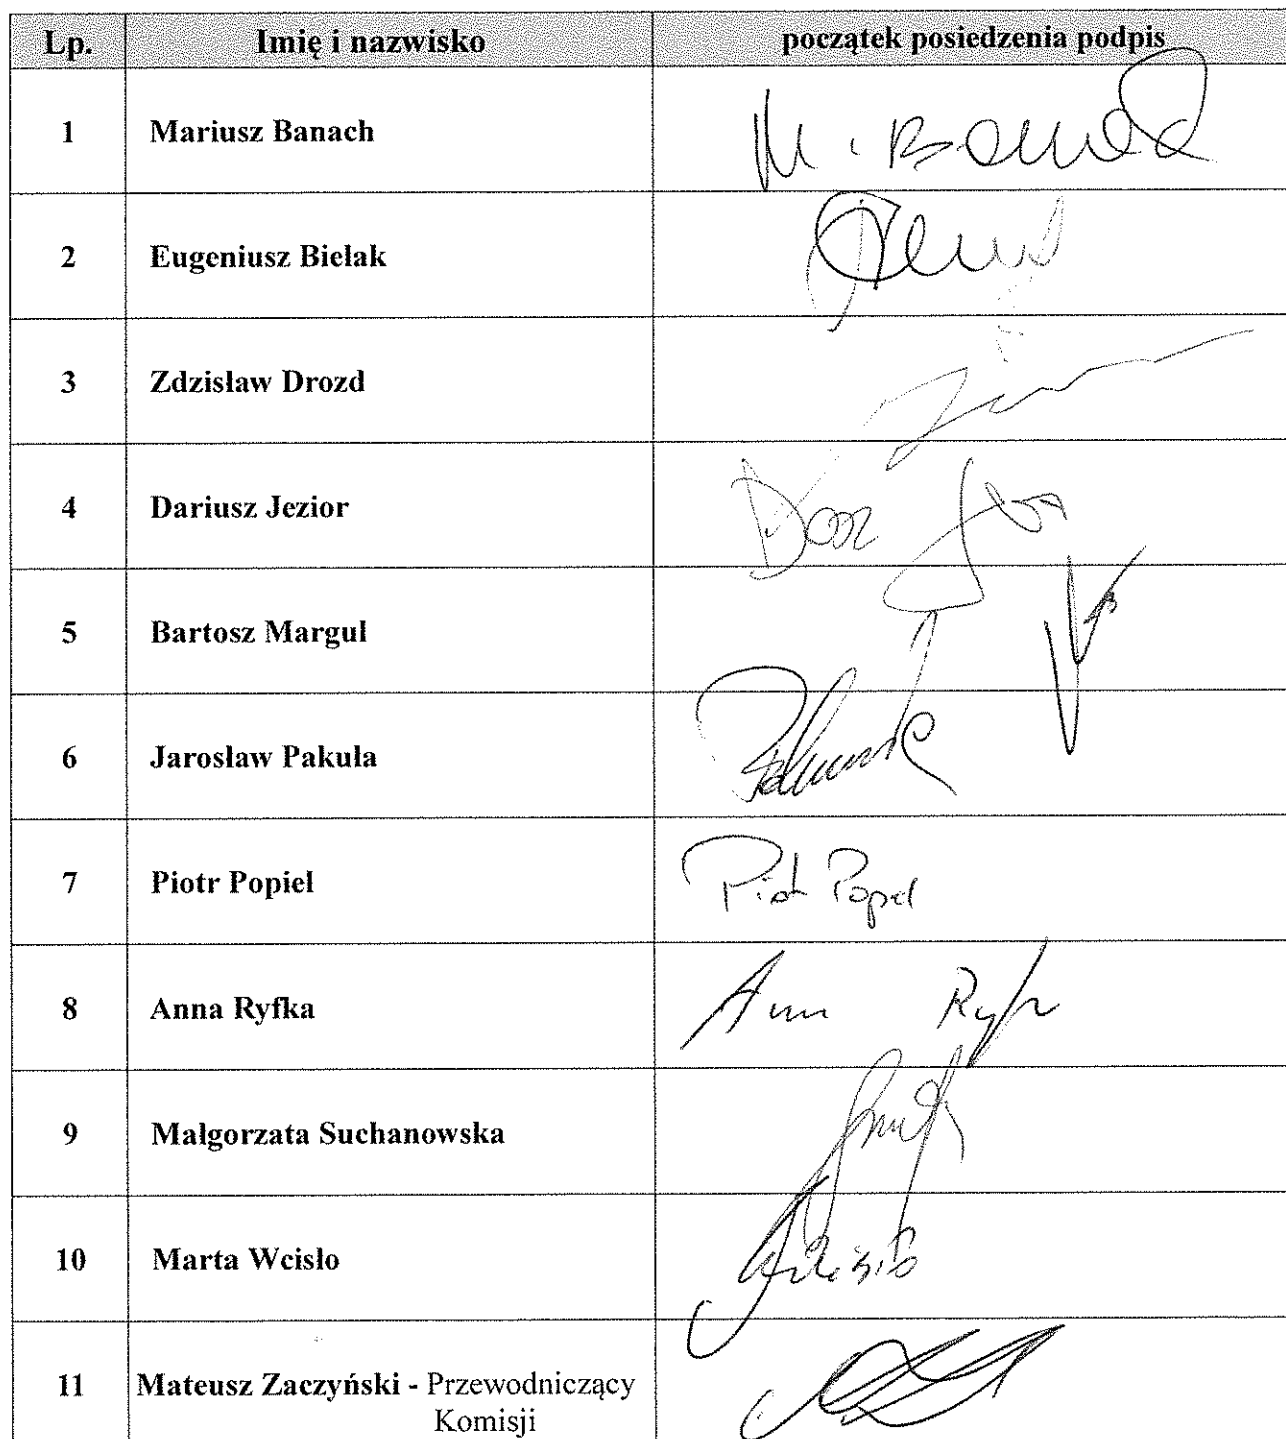 Lp. Imię i nazwisko początek posiedzenia podpis
1 Mariusz Banach M. Banach
2 Eugeniusz Bielak
3 Zdzisław Drozd
4 Dariusz Jezior
5 Bartosz Margul
6 Jarosław Pakuła
7 Piotr Popiel Piotr Popiel
8 Anna Ryfka Anna
9 Małgorzata Suchanowska
10 Marta Wcisło
11 Mateusz Zaczyński - Przewodniczący
Komisji